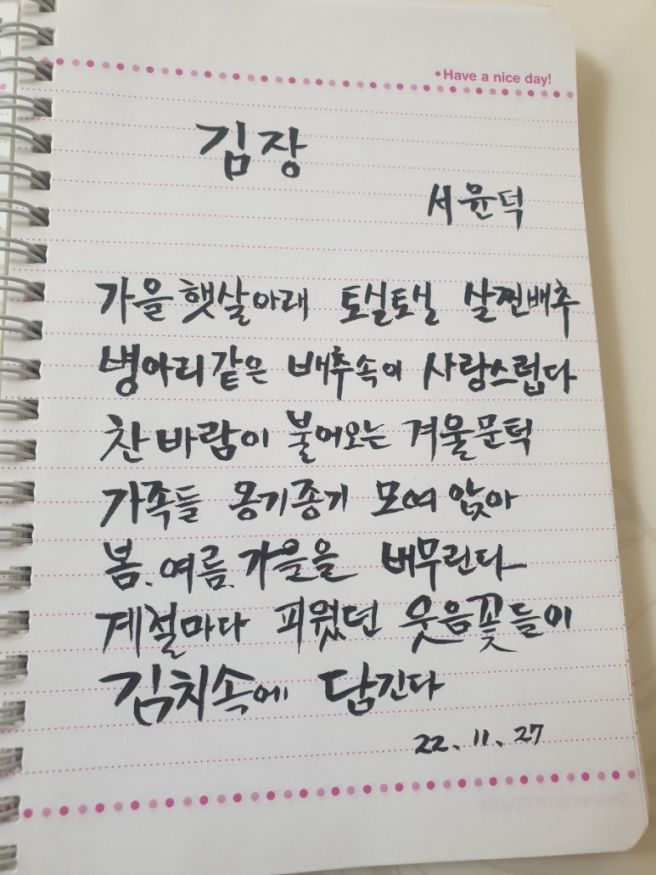 •Have a nice day!
김장
서윤덕
가을 햇살아래 토실토실 살찐배추
병아리같은 배추속이 사랑스럽다
찬바람이 불어오는 겨울문턱
가족들 옹기종기 모여 앉아
봄.여름.가을을 버무린다
계절마다 피웠던 웃음꽃들이
김치속에 담긴다
22.11.27